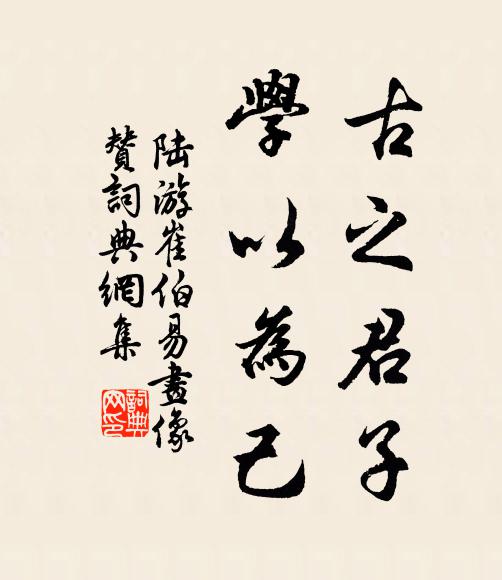 古之君子
學以為己
陆游崔伯易畫像
贊詞典網集
詞典
网印